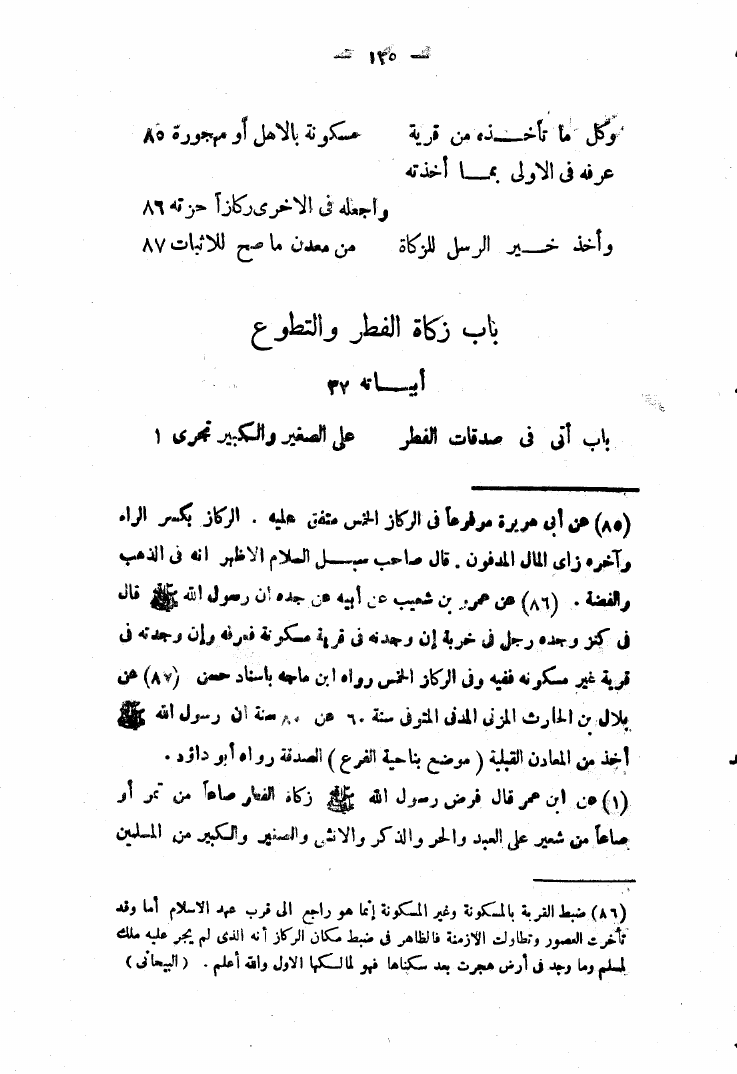 — ١٣٥ —
وكل ما تأخــذه من قرية مسكونة بالاهل أو مهجورة ٨٥
عرفه فى الاولى بمــا أخذته
واجعله فى الاخرى ركازاً حزته ٨٦
وأخذ خــير الرسل للزكاة من معدن ما صح للاثبات ٨٧
باب زكاة الفطر والتطوع
أبيــاته ٣٧
باب أتى فى صدقات الفطر على الصغير والكبير تجرى ١
(٨٥) عن أبى هريرة مرفوعاً فى الركاز الخمس متفق عليه . الركاز بكسر الراء
وآخره زاى المال المدفون . قال صاحب سبــل السلام الاظهر انه فى الذهب
والفضة . (٨٦) عن عمرو بن شعيب عن أبيه عن جده ان رسول الله ﷺ قال
فى كنز وجده رجل فى خربة إن وجدته فى قرية مسكونة فعرفه وإن وجدته فى
قرية غير مسكونه ففيه وفى الركاز الخمس رواه ابن ماجه باسناد حسن (٨٧) عن
بلال بن الحارث المزنى المدنى المتوفى سنة ٦٠ عن ٨٠ سنة ان رسول الله ﷺ
أخذ من المعادن القبلية (موضع بناحية الفرع) الصدقة رواه أبو داؤد .
(١) عن ابن عمر قال فرض رسول الله ﷺ زكاة الفطر صاعاً من تمر أو
صاعاً من شعير على العبد والحر والذكر والانثى والصغير والكبير من المسلمين
(٨٦) ضبط القرية بالمسكونة وغير المسكونة إنما هو راجع الى قرب عهد الاسلام أما وقد
تأخرت العصور وتطاولت الازمنة فالظاهر فى ضبط مكان الركاز أنه الذى لم يجر عليه ملك
لمسلم وما وجد فى أرض هجرت بعد سكناها فهو لمالكها الاول والله أعلم . (البيحانى)